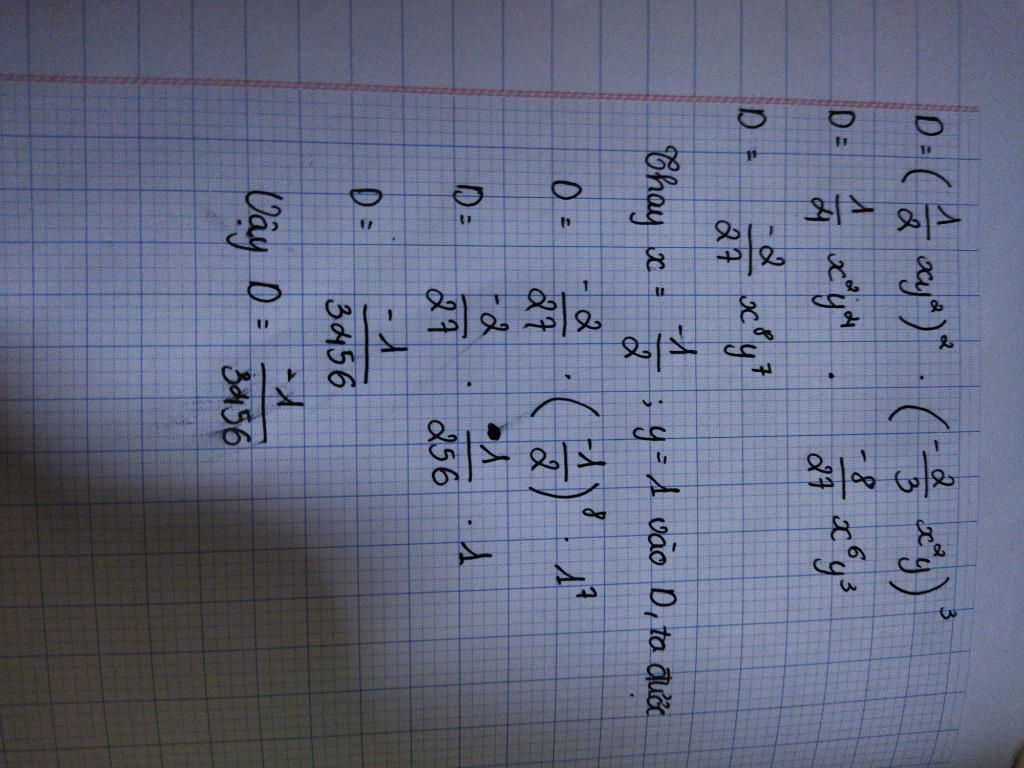 D = (1/2 xy²)² . (-2/3 x²y)³
D = 1/4 x²y⁴ . -8/27 x⁶y³
D = -2/27 x⁸y⁷
Thay x = -1/2 ; y = 1 vào D, ta được
D = -2/27 . (-1/2)⁸ . 1⁷
D = -2/27 . 1/256 . 1
D = -1/3456
Vậy D = -1/3456